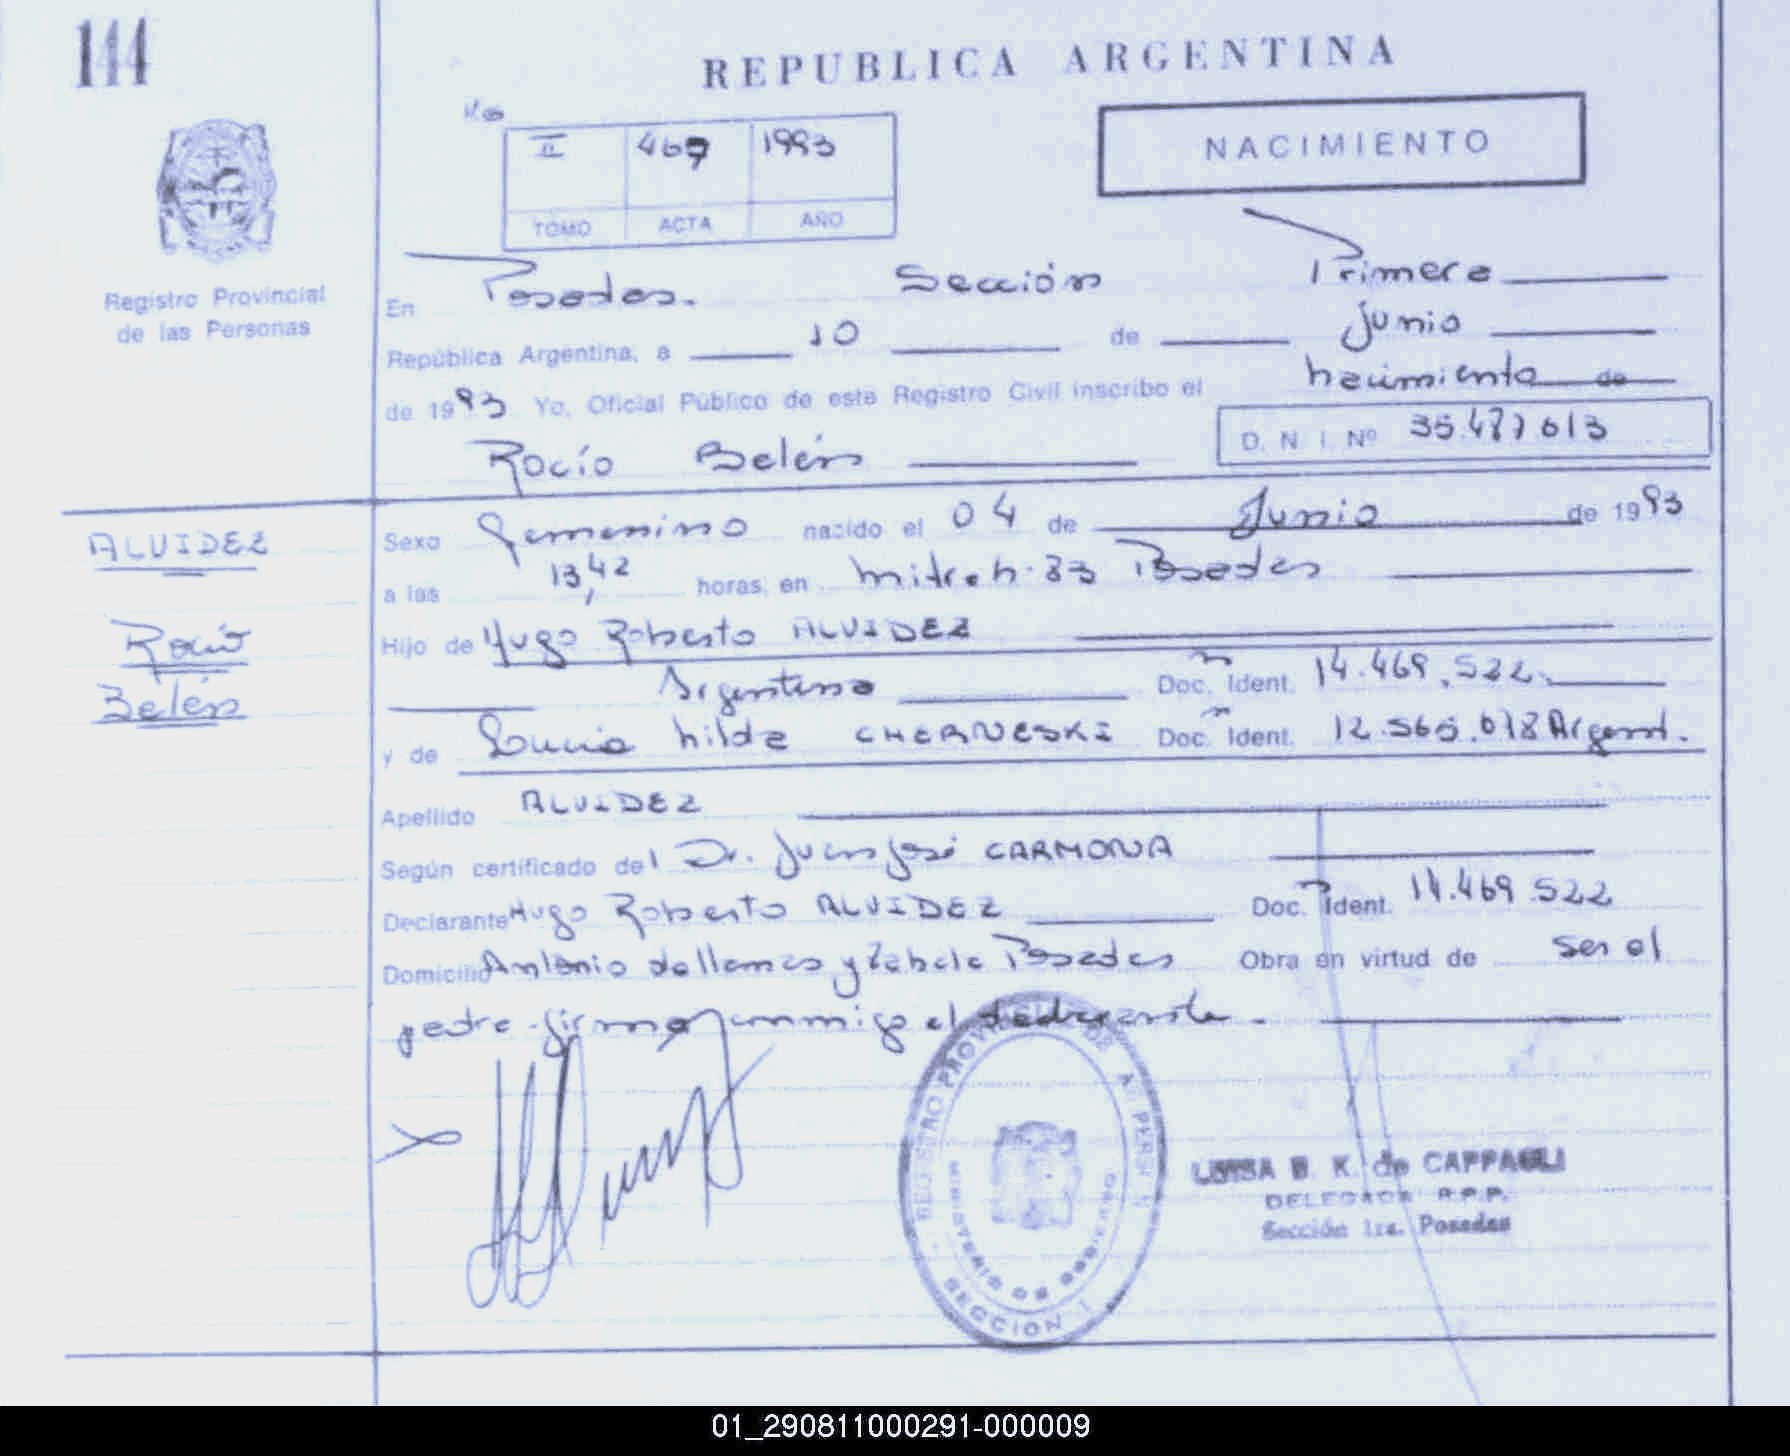 144
REPUBLICA ARGENTINA
II 467 1993
TOMO ACTA AÑO
NACIMIENTO
Registro Provincial
de las Personas
En Posadas. Sección Primera
República Argentina, a 10 de Junio
de 1993 Yo, Oficial Público de este Registro Civil inscribo el nacimiento de
Rocío Belén D. N. I. Nº 35.477.613
ALVIDEZ
Rocío
Belén
Sexo Femenino nacido el 04 de Junio de 1993
a las 13,42 horas, en Posadas
Hijo de Hugo Roberto ALVIDEZ
Argentino Doc. Ident. 14.469.522.
y de Hilda CHERNESKI Doc. Ident. 12.565.078 Argent.
Apellido ALVIDEZ
Según certificado del Dr. Juan José CARMONA
Declarante Hugo Roberto ALVIDEZ Doc. Ident. 14.469.522
Domicilio Antonio de llamas y Zabala Posadas Obra en virtud de ser el
padre firma conmigo el declarante.
REGISTRO PROVINCIAL DE LAS PERSONAS
MINISTERIO DE GOBIERNO
SECCION I
LUISA B. K. de CAPPAGLI
DELEGADA R.P.P.
Sección 1ra. Posadas
01_290811000291-000009